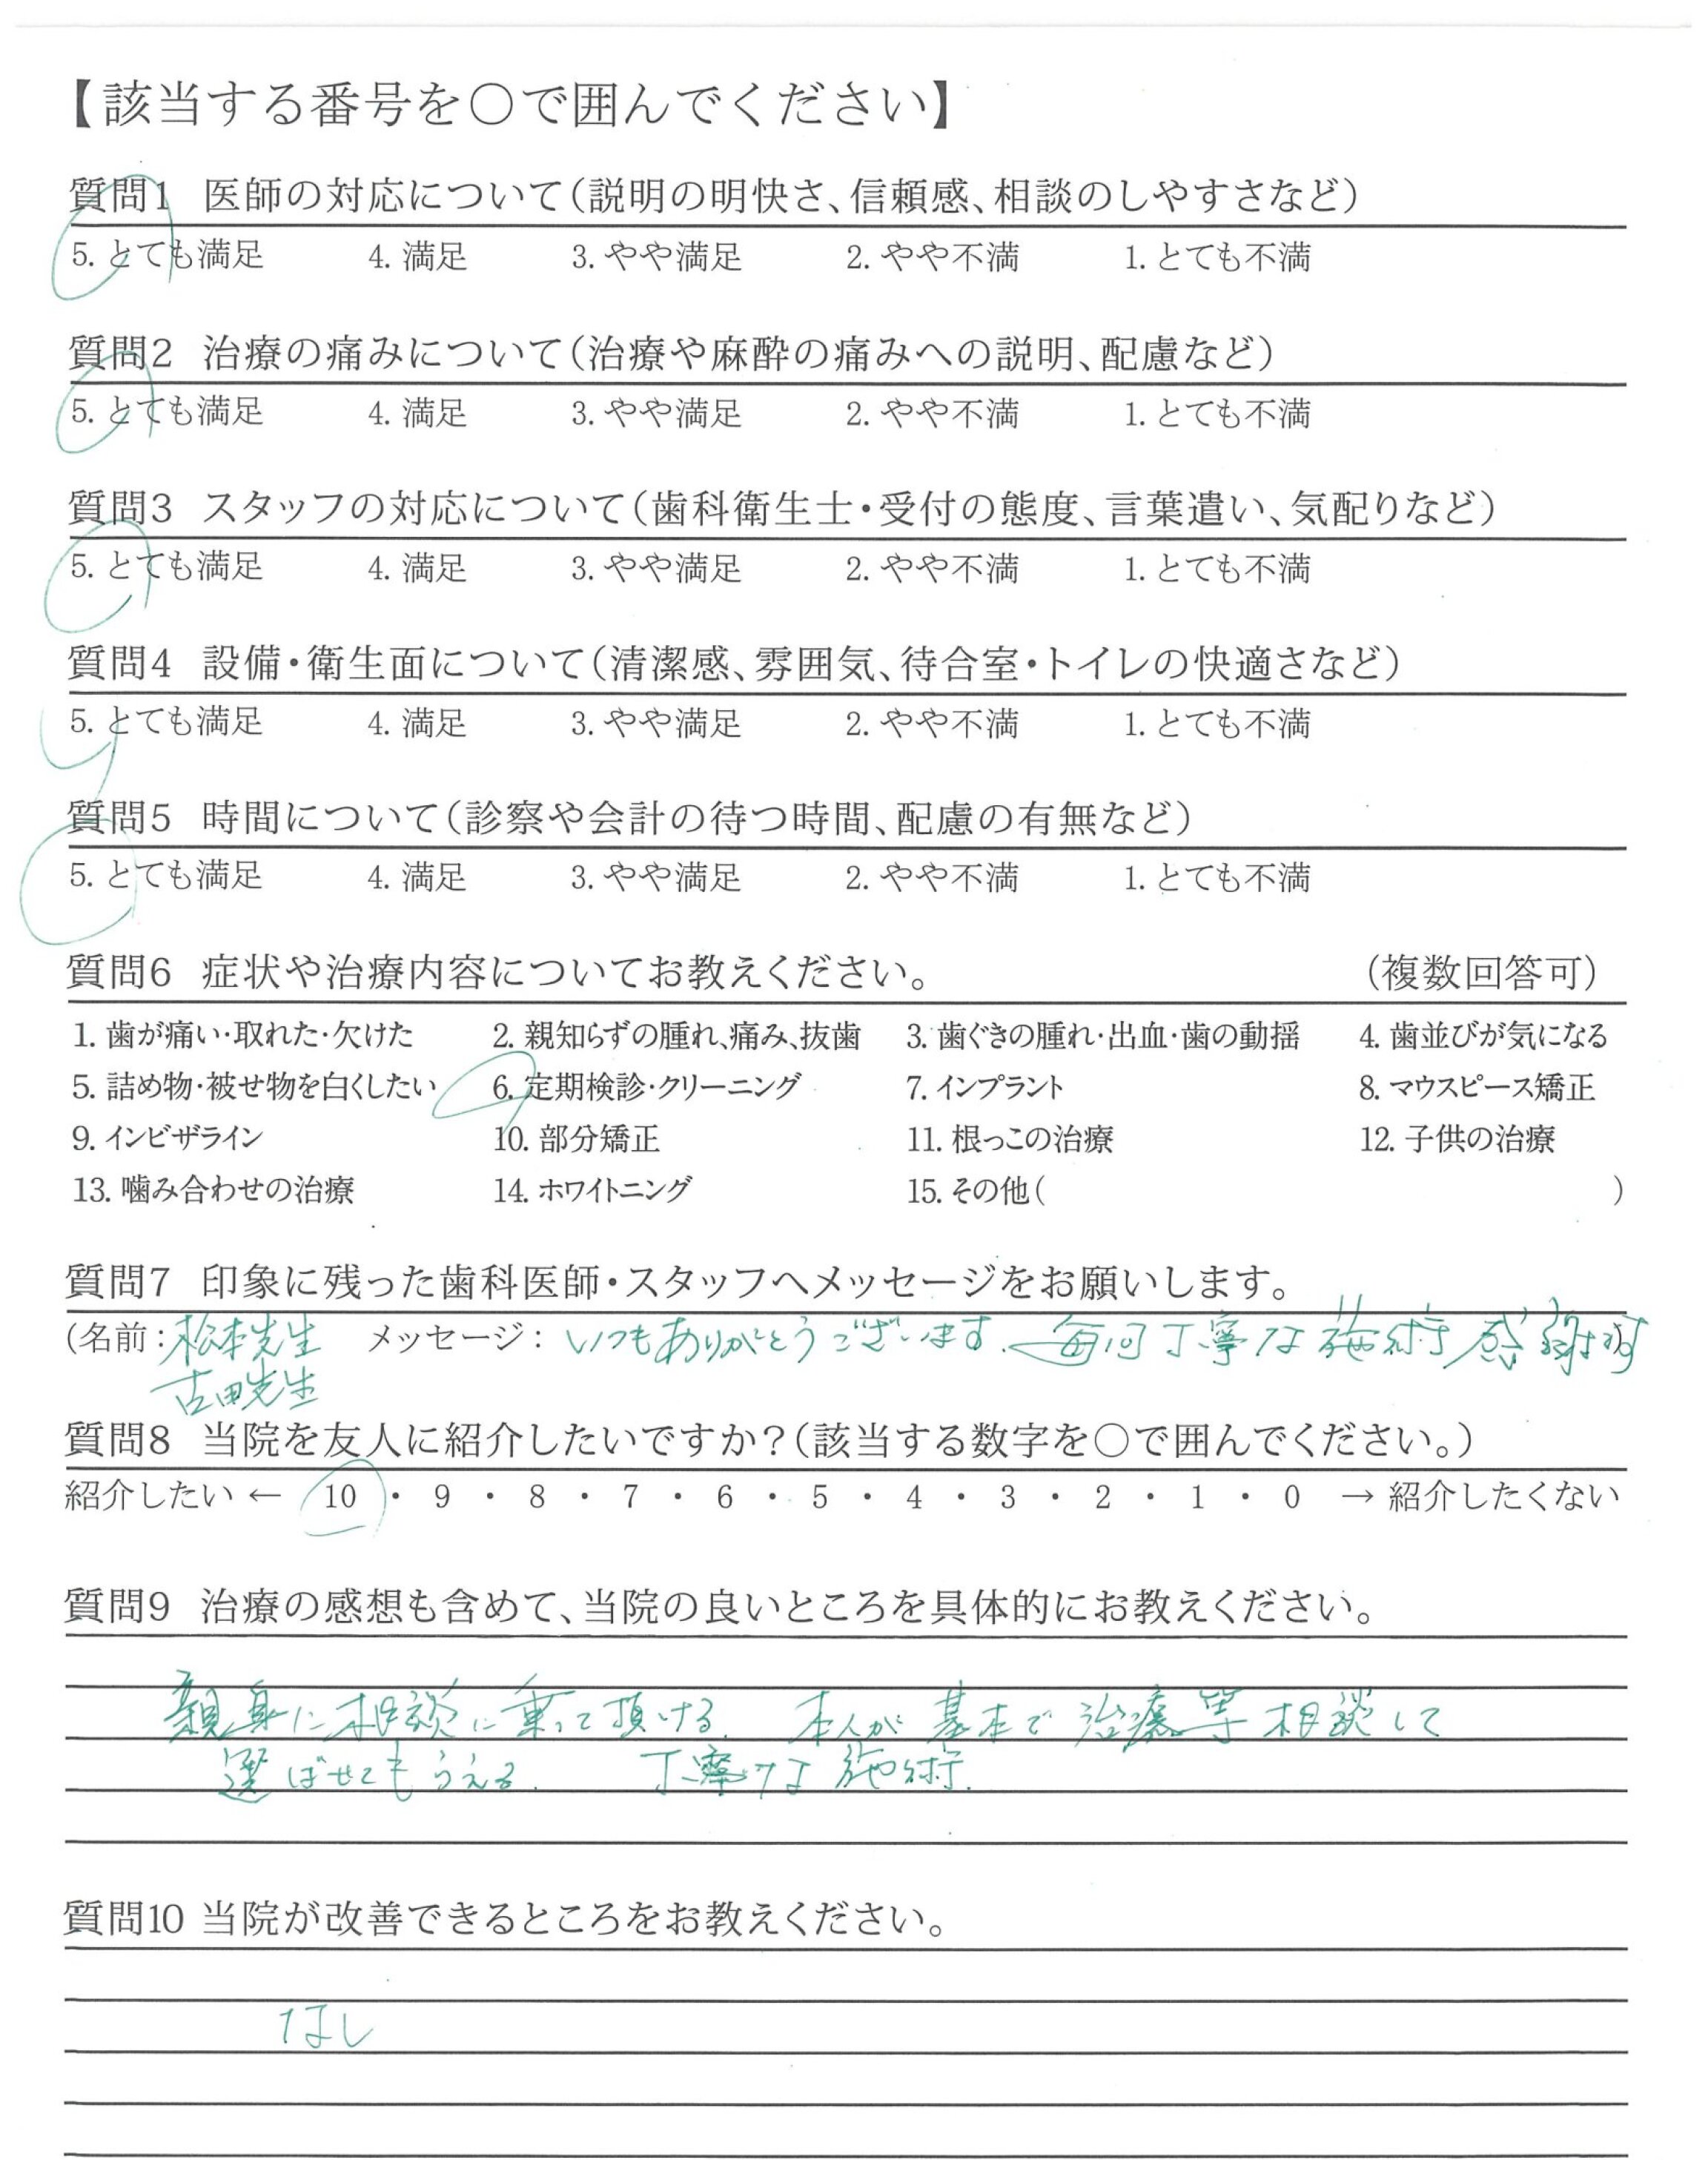 【該当する番号を○で囲んでください】
質問1 医師の対応について(説明の明快さ、信頼感、相談のしやすさなど)
5. とても満足 4. 満足 3. やや満足 2. やや不満 1. とても不満
質問2 治療の痛みについて(治療や麻酔の痛みへの説明、配慮など)
5. とても満足 4. 満足 3. やや満足 2. やや不満 1. とても不満
質問3 スタッフの対応について(歯科衛生士・受付の態度、言葉遣い、気配りなど)
5. とても満足 4. 満足 3. やや満足 2. やや不満 1. とても不満
質問4 設備・衛生面について(清潔感、雰囲気、待合室・トイレの快適さなど)
5. とても満足 4. 満足 3. やや満足 2. やや不満 1. とても不満
質問5 時間について(診察や会計の待つ時間、配慮の有無など)
5. とても満足 4. 満足 3. やや満足 2. やや不満 1. とても不満
質問6 症状や治療内容についてお教えください。 (複数回答可)
1. 歯が痛い・取れた・欠けた 2. 親知らずの腫れ、痛み、抜歯 3. 歯ぐきの腫れ・出血・歯の動揺 4. 歯並びが気になる
5. 詰め物・被せ物を白くしたい 6. 定期検診・クリーニング 7. インプラント 8. マウスピース矯正
9. インビザライン 10. 部分矯正 11. 根っこの治療 12. 子供の治療
13. 噛み合わせの治療 14. ホワイトニング 15. その他( )
質問7 印象に残った歯科医師・スタッフへメッセージをお願いします。
(名前: 松本先生 メッセージ: いつもありがとうございます. 毎回丁寧な施術感謝です)
古田先生
質問8 当院を友人に紹介したいですか?(該当する数字を○で囲んでください。)
紹介したい ← 10 ・ 9 ・ 8 ・ 7 ・ 6 ・ 5 ・ 4 ・ 3 ・ 2 ・ 1 ・ 0 → 紹介したくない
質問9 治療の感想も含めて、当院の良いところを具体的にお教えください。
親身に相談に乗って頂ける. 本人が基本で治療等相談して
選ばせてもらえる. 丁寧な施術.
質問10 当院が改善できるところをお教えください。
なし